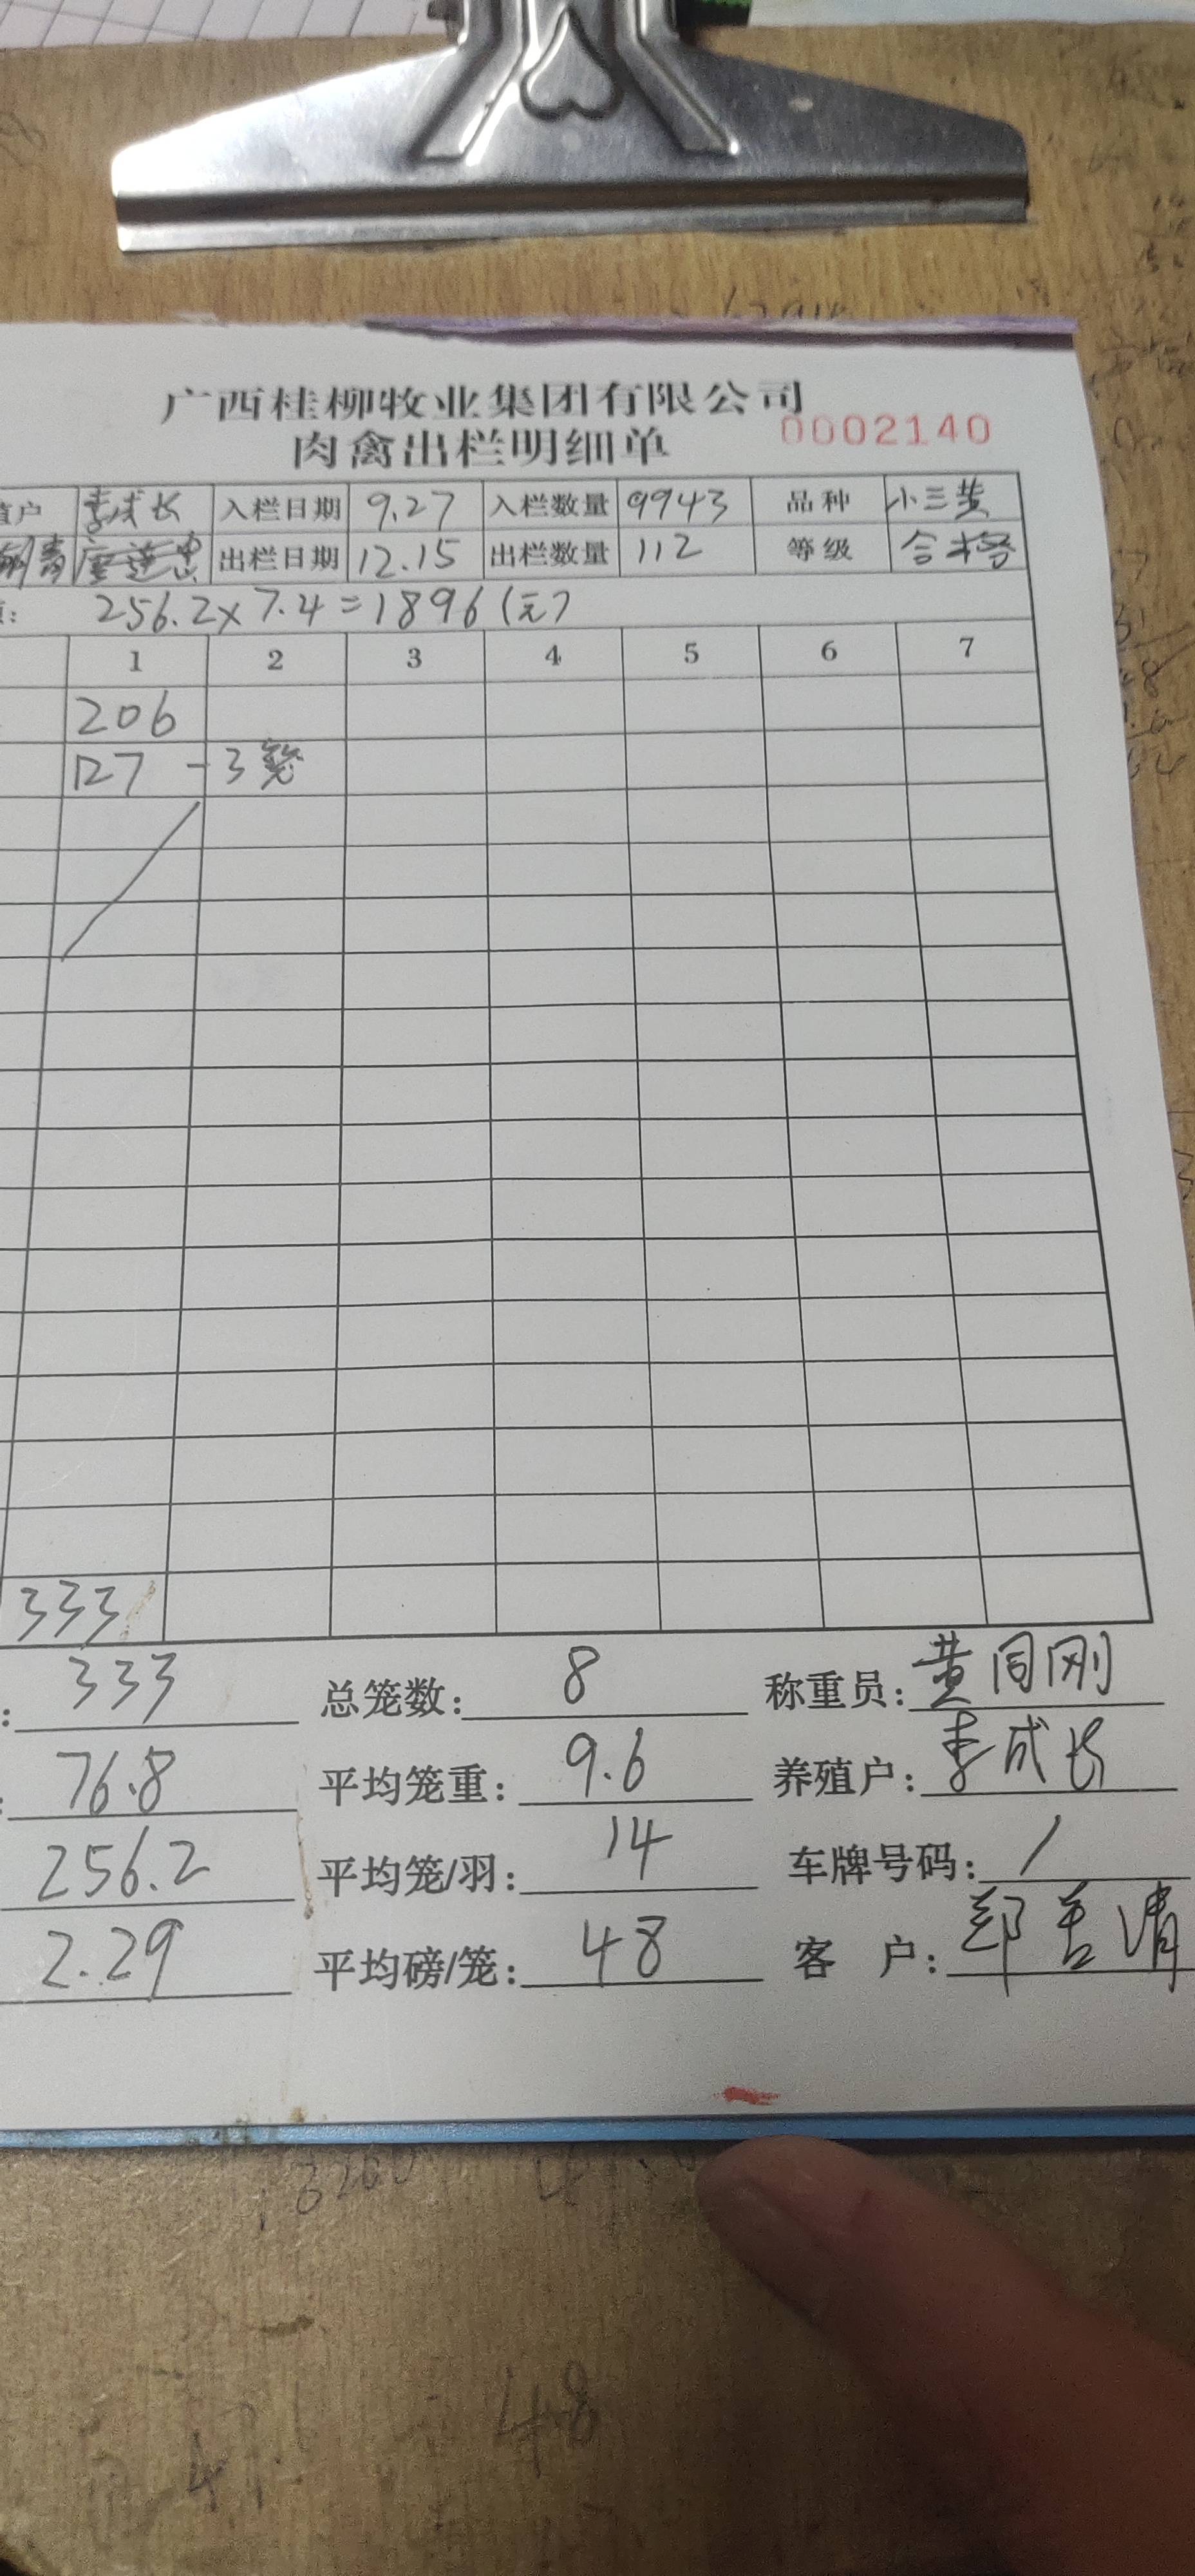 广西桂柳牧业集团有限公司
肉禽出栏明细单 0002140
殖户 李成长 入栏日期 9.27 入栏数量 9943 品种 小三黄
出栏日期 12.15 出栏数量 112 等级 合格
256.2×7.4=1896(元)
1 2 3 4 5 6 7
206
127 -3笼
333
333 总笼数: 8 称重员: 黄同刚
76.8 平均笼重: 9.6 养殖户: 李成长
256.2 平均笼/羽: 14 车牌号码: /
2.29 平均磅/笼: 48 客 户: 郑
48